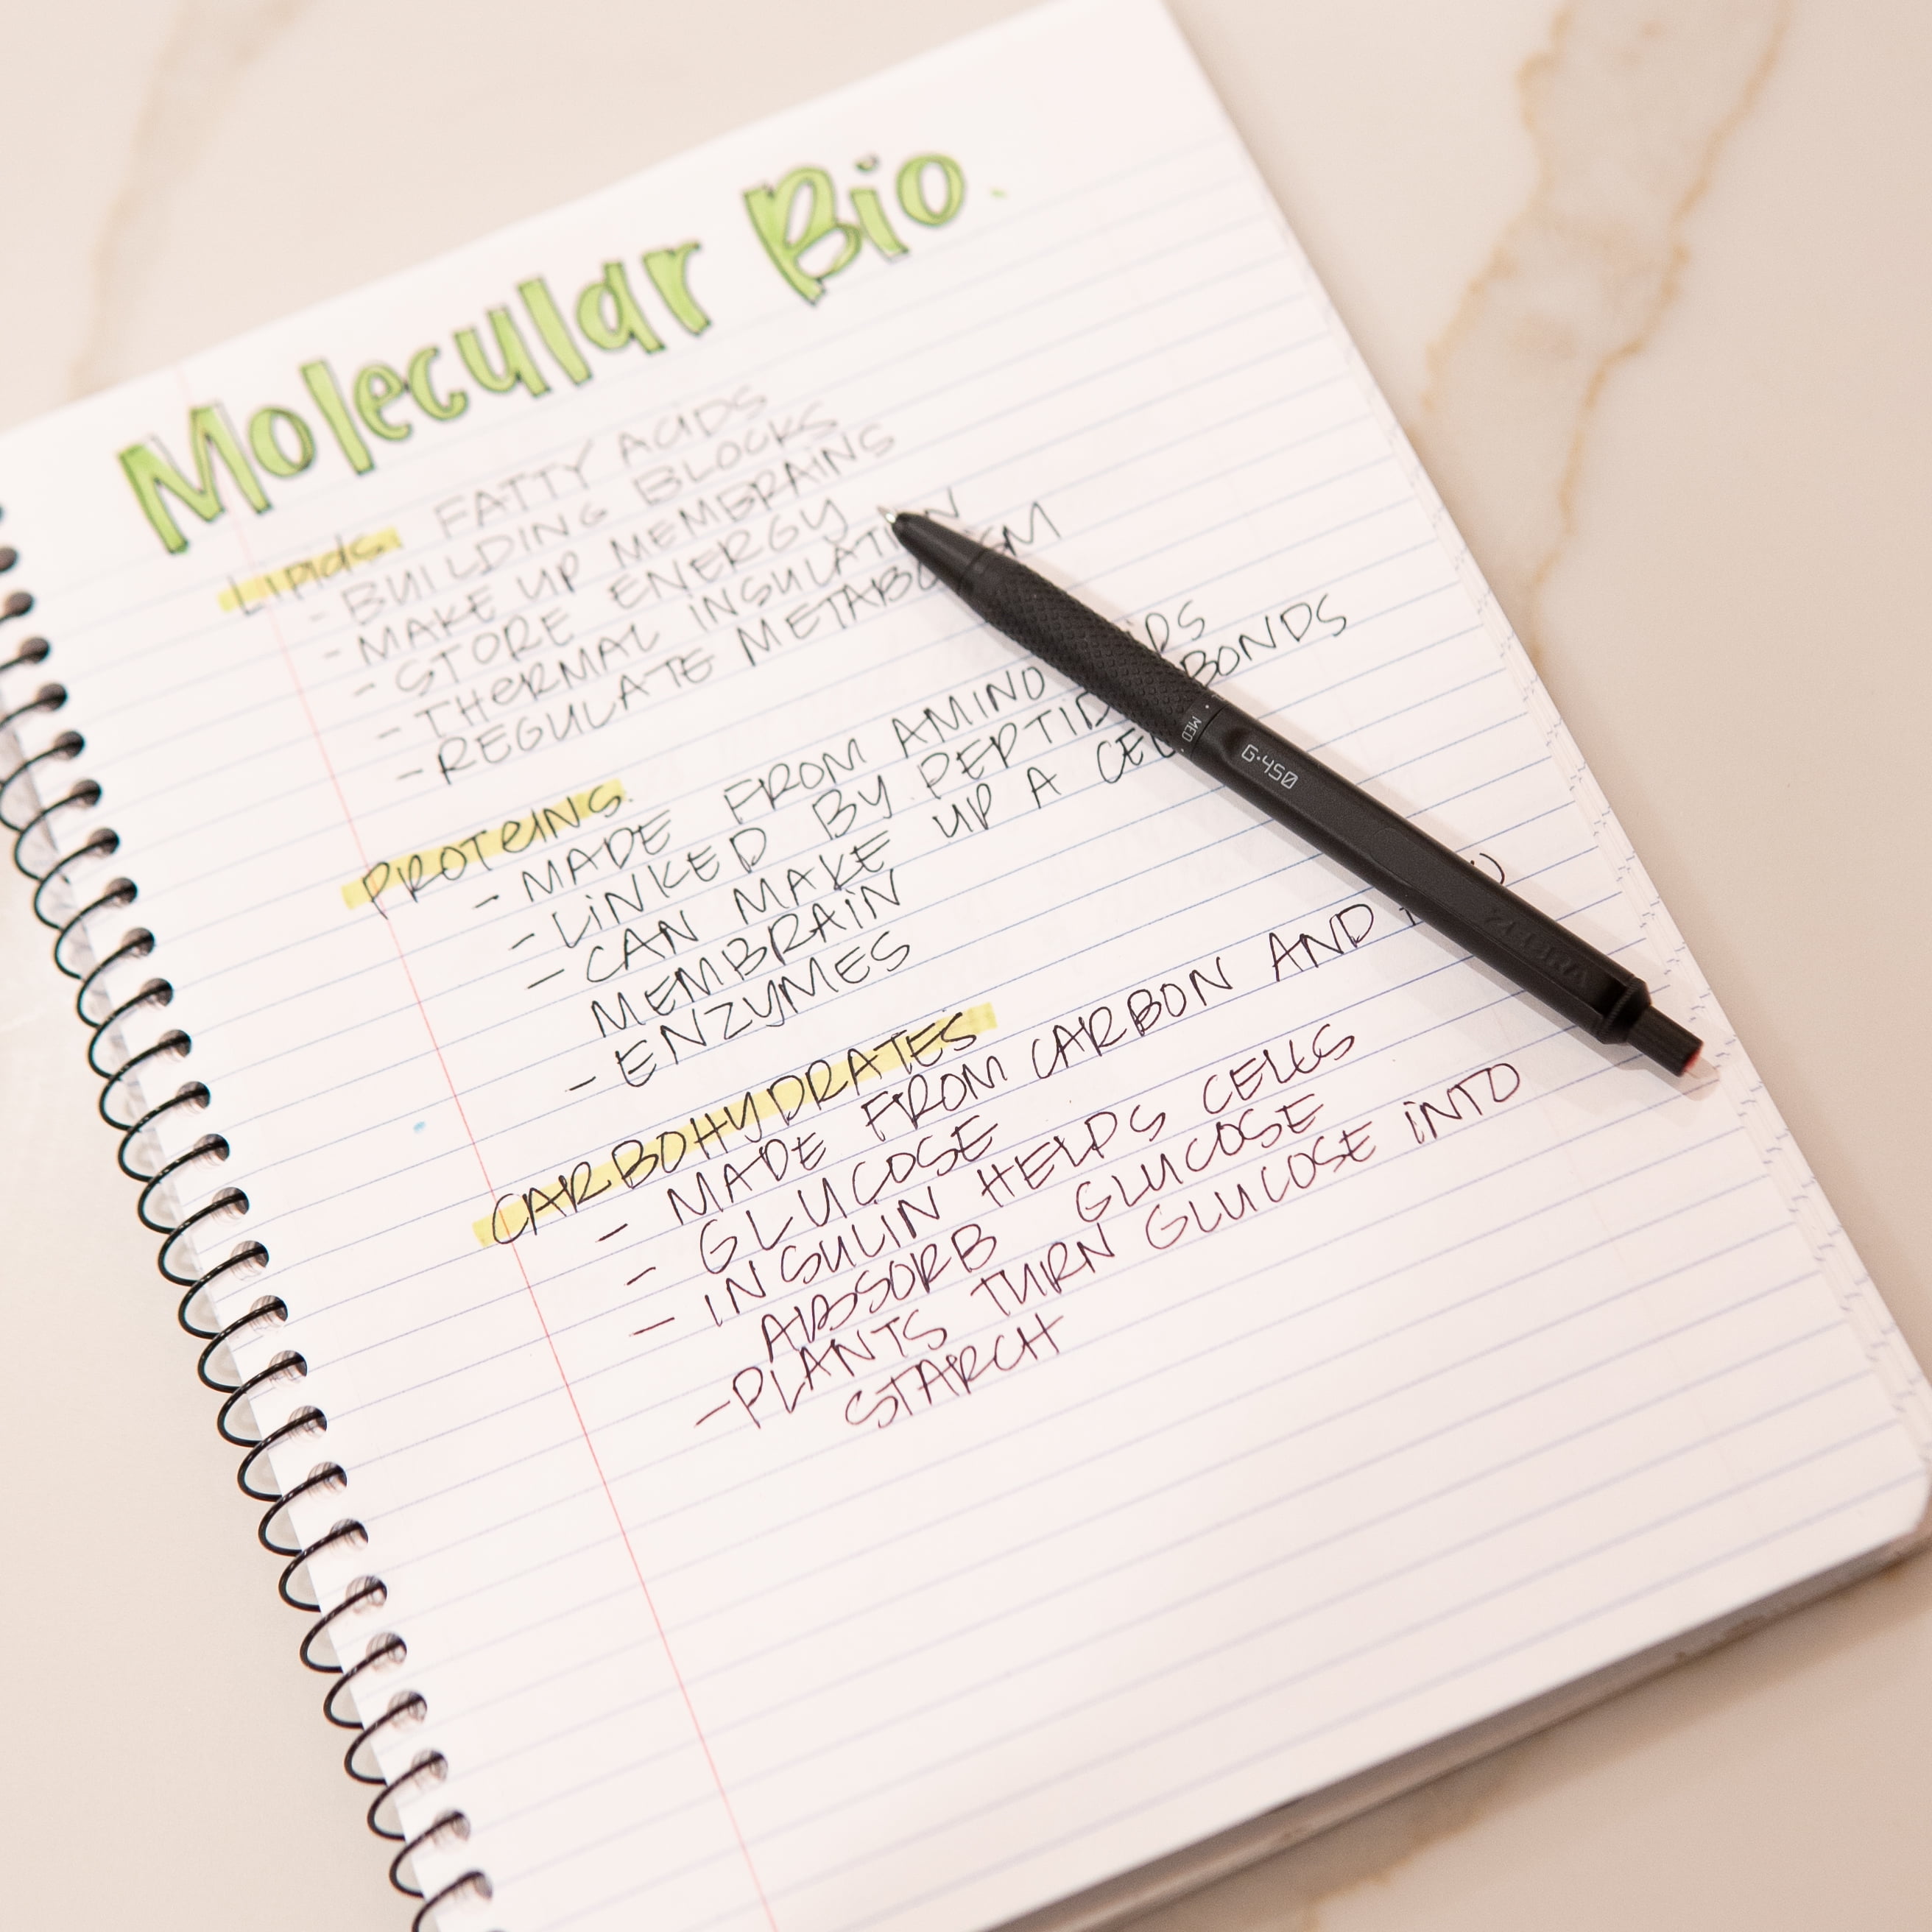 Molecular Bio.
Lipids FATTY ACIDS
- BUILDING BLOCKS
- MAKE UP MEMBRAINS
- STORE ENERGY
- THERMAL INSULATION
- REGULATE METABOLISM
PROTEINS.
- MADE FROM AMINO
- LINKED BY PEPTIDE BONDS
- CAN MAKE UP A CELL
MEMBRAIN
- ENZYMES
CARBOHYDRATES
- MADE FROM CARBON AND
- GLUCOSE
- INSULIN HELPS CELLS
ABSORB GLUCOSE
- PLANTS TURN GLUCOSE INTO
STARCH
MED
G-450
ZEBRA